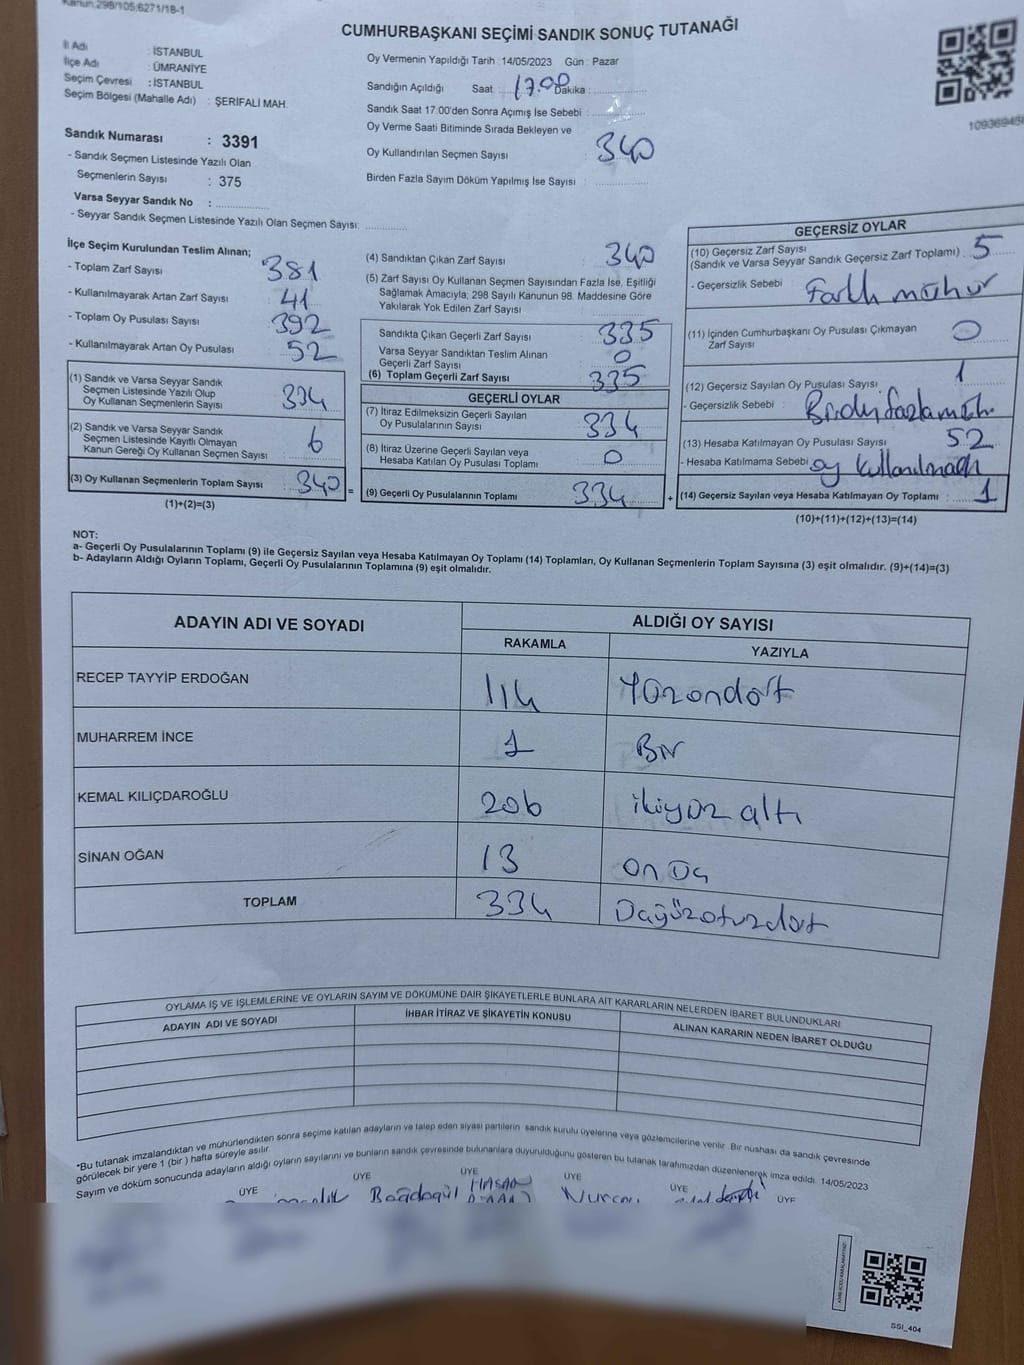 Kanun:298/105;6271/18-1
CUMHURBAŞKANI SEÇİMİ SANDIK SONUÇ TUTANAĞI
İl Adı : İSTANBUL
İlçe Adı : ÜMRANİYE
Seçim Çevresi : İSTANBUL
Seçim Bölgesi (Mahalle Adı) : ŞERİFALİ MAH.
Sandık Numarası : 3391
- Sandık Seçmen Listesinde Yazılı Olan
Seçmenlerin Sayısı : 375
Varsa Seyyar Sandık No :
- Seyyar Sandık Seçmen Listesinde Yazılı Olan Seçmen Sayısı:
Oy Vermenin Yapıldığı Tarih : 14/05/2023 Gün : Pazar
Sandığın Açıldığı Saat : 17.00 Dakika :
Sandık Saat 17:00'den Sonra Açımış İse Sebebi :
Oy Verme Saati Bitiminde Sırada Bekleyen ve
Oy Kullandırılan Seçmen Sayısı : 340
Birden Fazla Sayım Döküm Yapılmış İse Sayısı :
İlçe Seçim Kurulundan Teslim Alınan;
- Toplam Zarf Sayısı 381
- Kullanılmayarak Artan Zarf Sayısı 41
- Toplam Oy Pusulası Sayısı 392
- Kullanılmayarak Artan Oy Pusulası 52
(1) Sandık ve Varsa Seyyar Sandık
Seçmen Listesinde Yazılı Olup
Oy Kullanan Seçmenlerin Sayısı 334
(2) Sandık ve Varsa Seyyar Sandık
Seçmen Listesinde Kayıtlı Olmayan
Kanun Gereği Oy Kullanan Seçmen Sayısı 6
(3) Oy Kullanan Seçmenlerin Toplam Sayısı 340 =
(1)+(2)=(3)
(4) Sandıktan Çıkan Zarf Sayısı 340
(5) Zarf Sayısı Oy Kullanan Seçmen Sayısından Fazla İse, Eşitliği
Sağlamak Amacıyla, 298 Sayılı Kanunun 98. Maddesine Göre
Yakılarak Yok Edilen Zarf Sayısı
Sandıkta Çıkan Geçerli Zarf Sayısı 335
Varsa Seyyar Sandıktan Teslim Alınan
Geçerli Zarf Sayısı 0
(6) Toplam Geçerli Zarf Sayısı 335
GEÇERLİ OYLAR
(7) İtiraz Edilmeksizin Geçerli Sayılan
Oy Pusulalarının Sayısı 334
(8) İtiraz Üzerine Geçerli Sayılan veya
Hesaba Katılan Oy Pusulası Toplamı 0
(9) Geçerli Oy Pusulalarının Toplamı 334 +
GEÇERSİZ OYLAR
(10) Geçersiz Zarf Sayısı
(Sandık ve Varsa Seyyar Sandık Geçersiz Zarf Toplamı) : 5
- Geçersizlik Sebebi : Farklı mühür
(11) İçinden Cumhurbaşkanı Oy Pusulası Çıkmayan
Zarf Sayısı 0
(12) Geçersiz Sayılan Oy Pusulası Sayısı 1
- Geçersizlik Sebebi :
(13) Hesaba Katılmayan Oy Pusulası Sayısı 52
- Hesaba Katılmama Sebebi oy kullanılmadı
(14) Geçersiz Sayılan veya Hesaba Katılmayan Oy Toplamı : 1
(10)+(11)+(12)+(13)=(14)
NOT:
a- Geçerli Oy Pusulalarının Toplamı (9) ile Geçersiz Sayılan veya Hesaba Katılmayan Oy Toplamı (14) Toplamları, Oy Kullanan Seçmenlerin Toplam Sayısına (3) eşit olmalıdır. (9)+(14)=(3)
b- Adayların Aldığı Oyların Toplamı, Geçerli Oy Pusulalarının Toplamına (9) eşit olmalıdır.
ADAYIN ADI VE SOYADI ALDIĞI OY SAYISI
RAKAMLA YAZIYLA
RECEP TAYYİP ERDOĞAN 114 Yüzondört
MUHARREM İNCE 1 Bir
KEMAL KILIÇDAROĞLU 206 ikiyüz altı
SİNAN OĞAN 13 on üç
TOPLAM 334 Üçyüzotuzdört
OYLAMA İŞ VE İŞLEMLERİNE VE OYLARIN SAYIM VE DÖKÜMÜNE DAİR ŞİKAYETLERLE BUNLARA AİT KARARLARIN NELERDEN İBARET BULUNDUKLARI
ADAYIN ADI VE SOYADI İHBAR İTİRAZ VE ŞİKAYETİN KONUSU ALINAN KARARIN NEDEN İBARET OLDUĞU
*Bu tutanak imzalandıktan ve mühürlendikten sonra seçime katılan adayların ve talep eden siyasi partilerin sandık kurulu üyelerine veya gözlemcilerine verilir. Bir nüshası da sandık çevresinde
görülecek bir yere 1 (bir) hafta süreyle asılır.
Sayım ve döküm sonucunda adayların aldığı oyların sayılarını ve bunların sandık çevresinde bulunanlara duyurulduğunu gösteren bu tutanak tarafımızdan düzenlenerek imza edildi. 14/05/2023
ÜYE ÜYE ÜYE ÜYE ÜYE ÜYE
HASAN
SSI_404